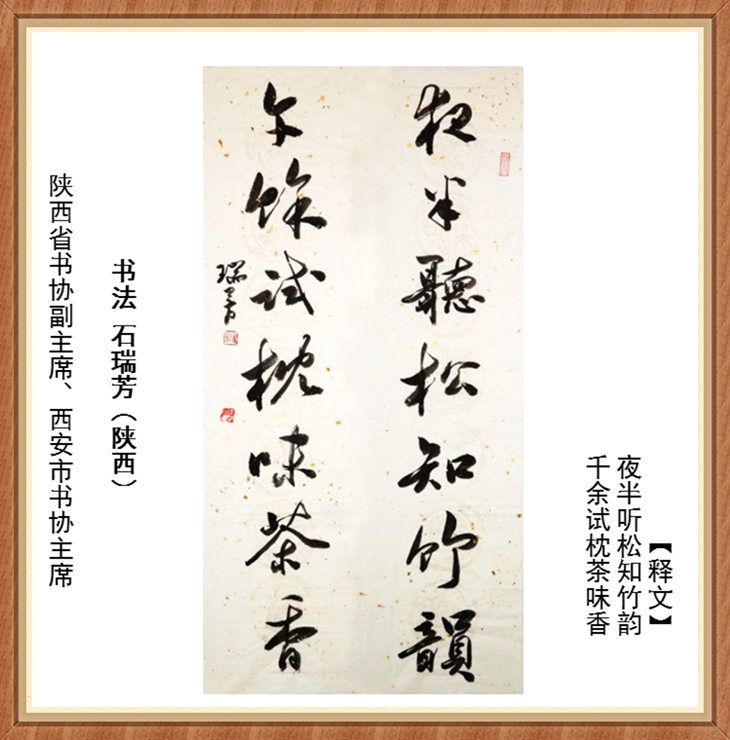 【释文】
夜半听松知竹韵
千余试枕茶味香
夜半聽松知竹韻
午餘試枕味茶香
瑞芳
书法 石瑞芳（陕西）
陕西省书协副主席、西安市书协主席